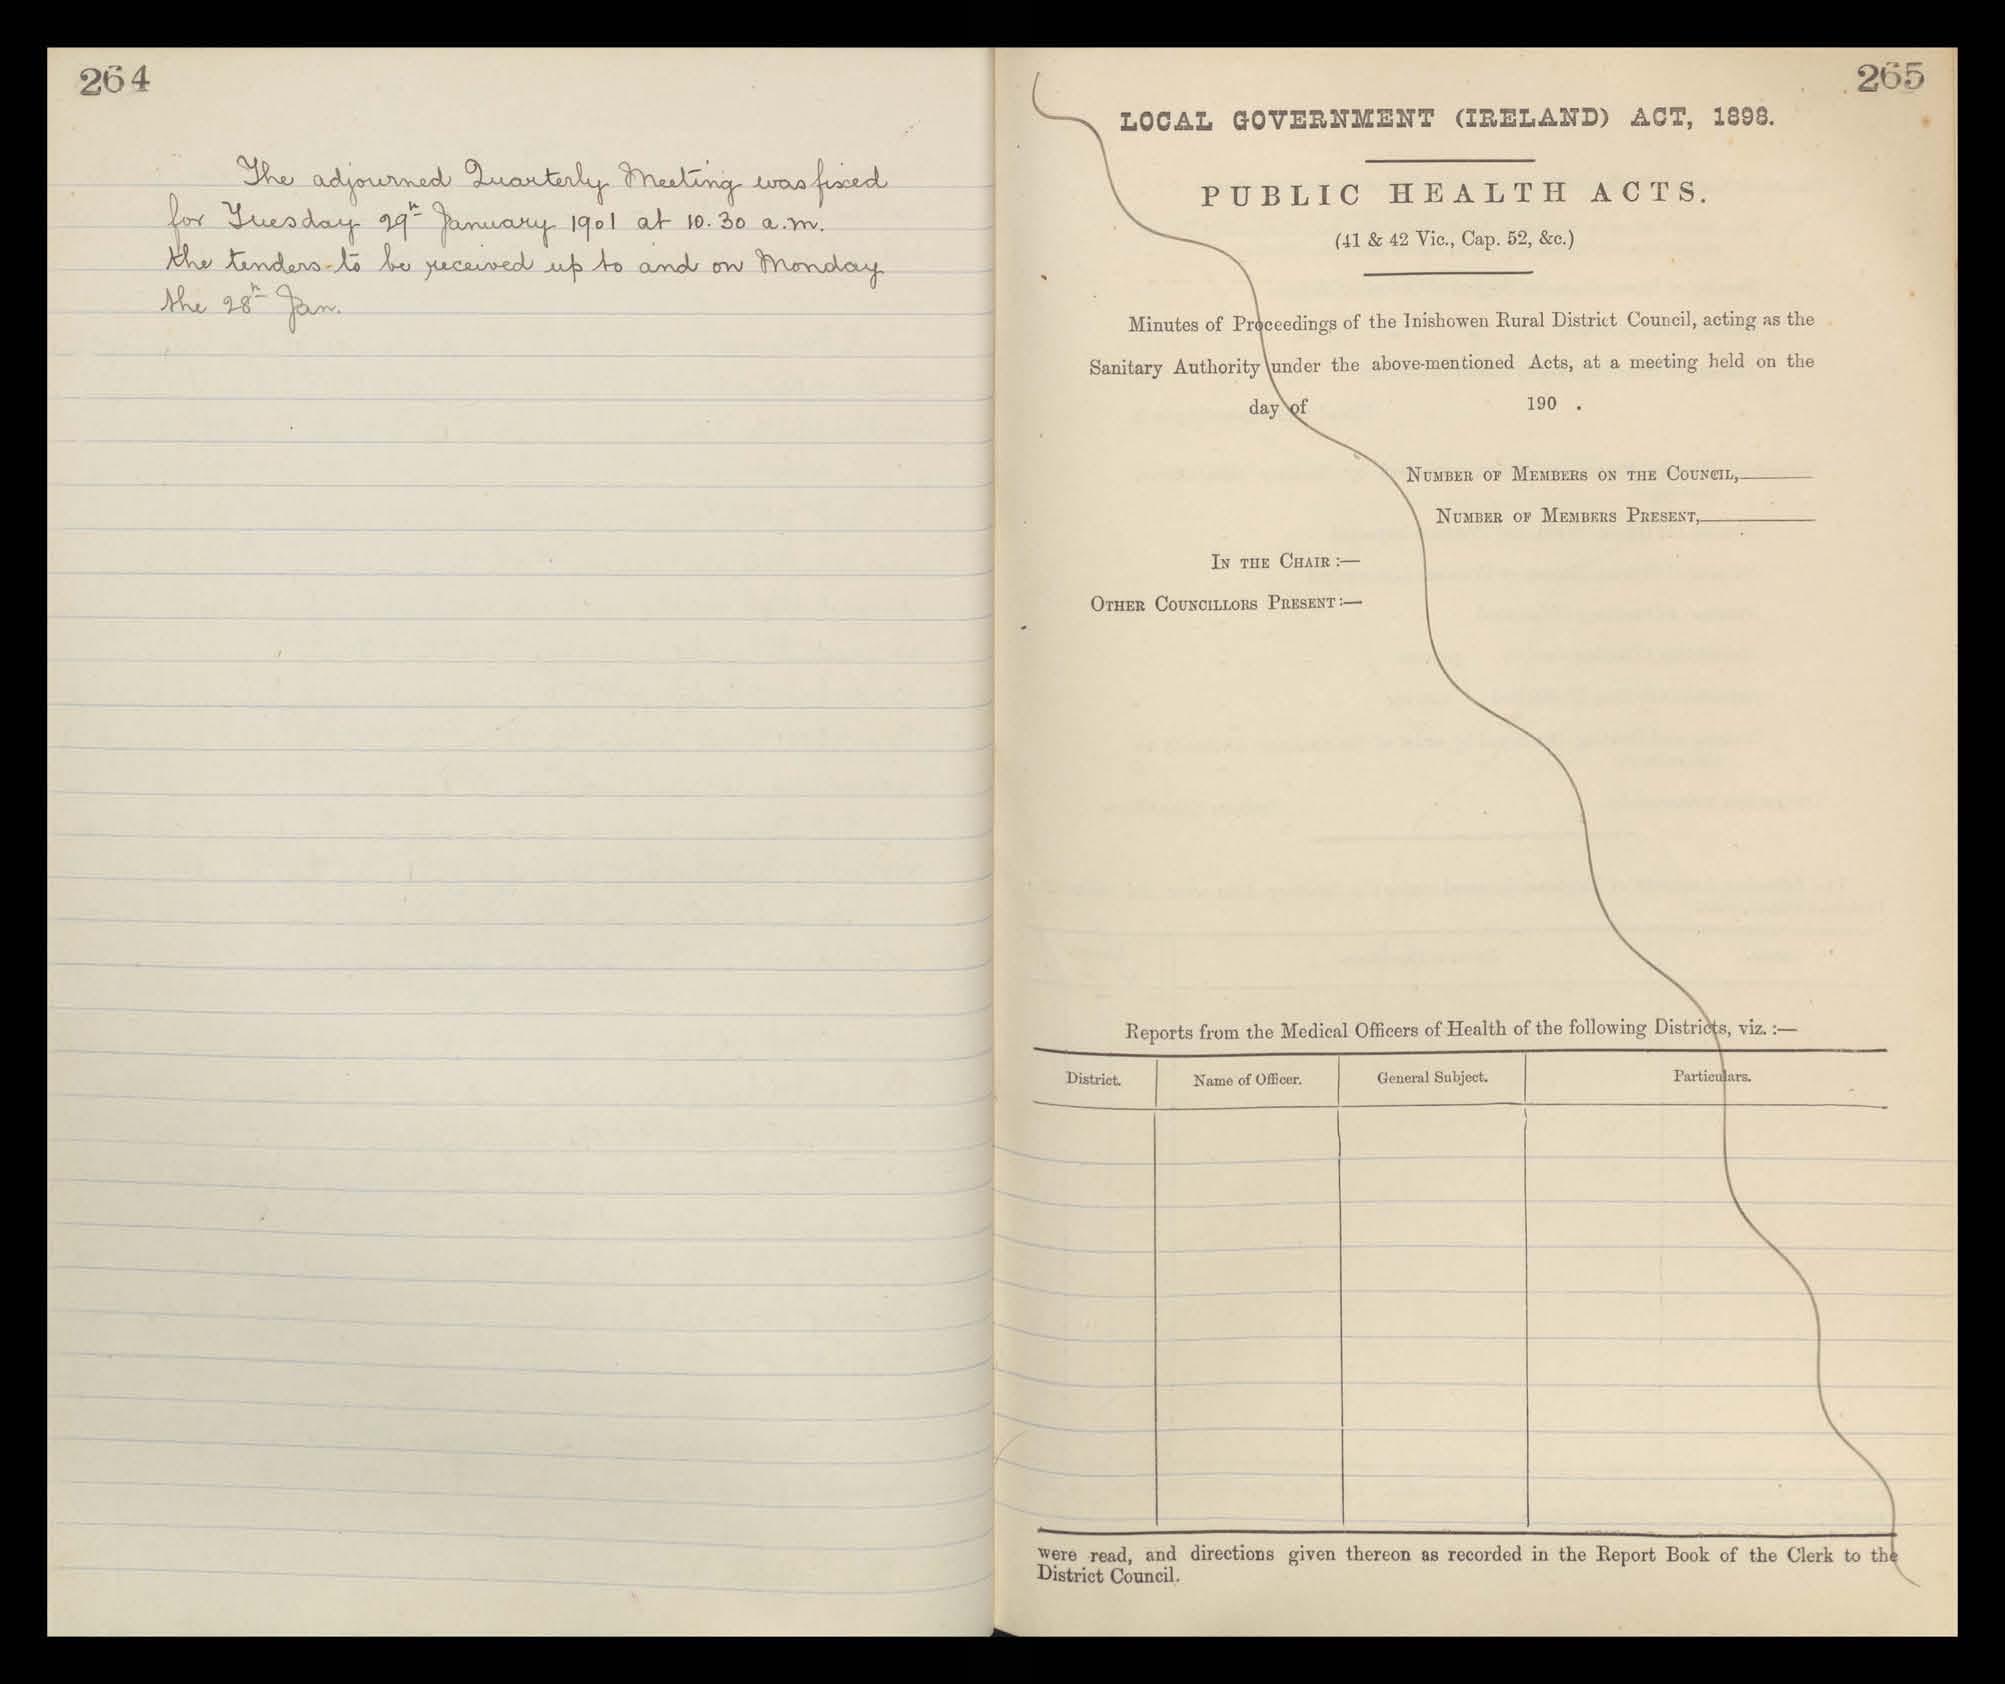 264
The adjourned Quarterly Meeting was fixed
for Tuesday 29th January 1901 at 10.30 a.m.
the tenders to be received up to and on Monday
the 28th Jan.
265
LOCAL GOVERNMENT (IRELAND) ACT, 1898.
PUBLIC HEALTH ACTS.
(41 & 42 Vic., Cap. 52, &c.)
Minutes of Proceedings of the Inishowen Rural District Council, acting as the
Sanitary Authority under the above-mentioned Acts, at a meeting held on the
day of 190 .
NUMBER OF MEMBERS ON THE COUNCIL,
NUMBER OF MEMBERS PRESENT,
IN THE CHAIR :—
OTHER COUNCILLORS PRESENT :—
Reports from the Medical Officers of Health of the following Districts, viz. :—
District. Name of Officer. General Subject. Particulars.
were read, and directions given thereon as recorded in the Report Book of the Clerk to the
District Council.